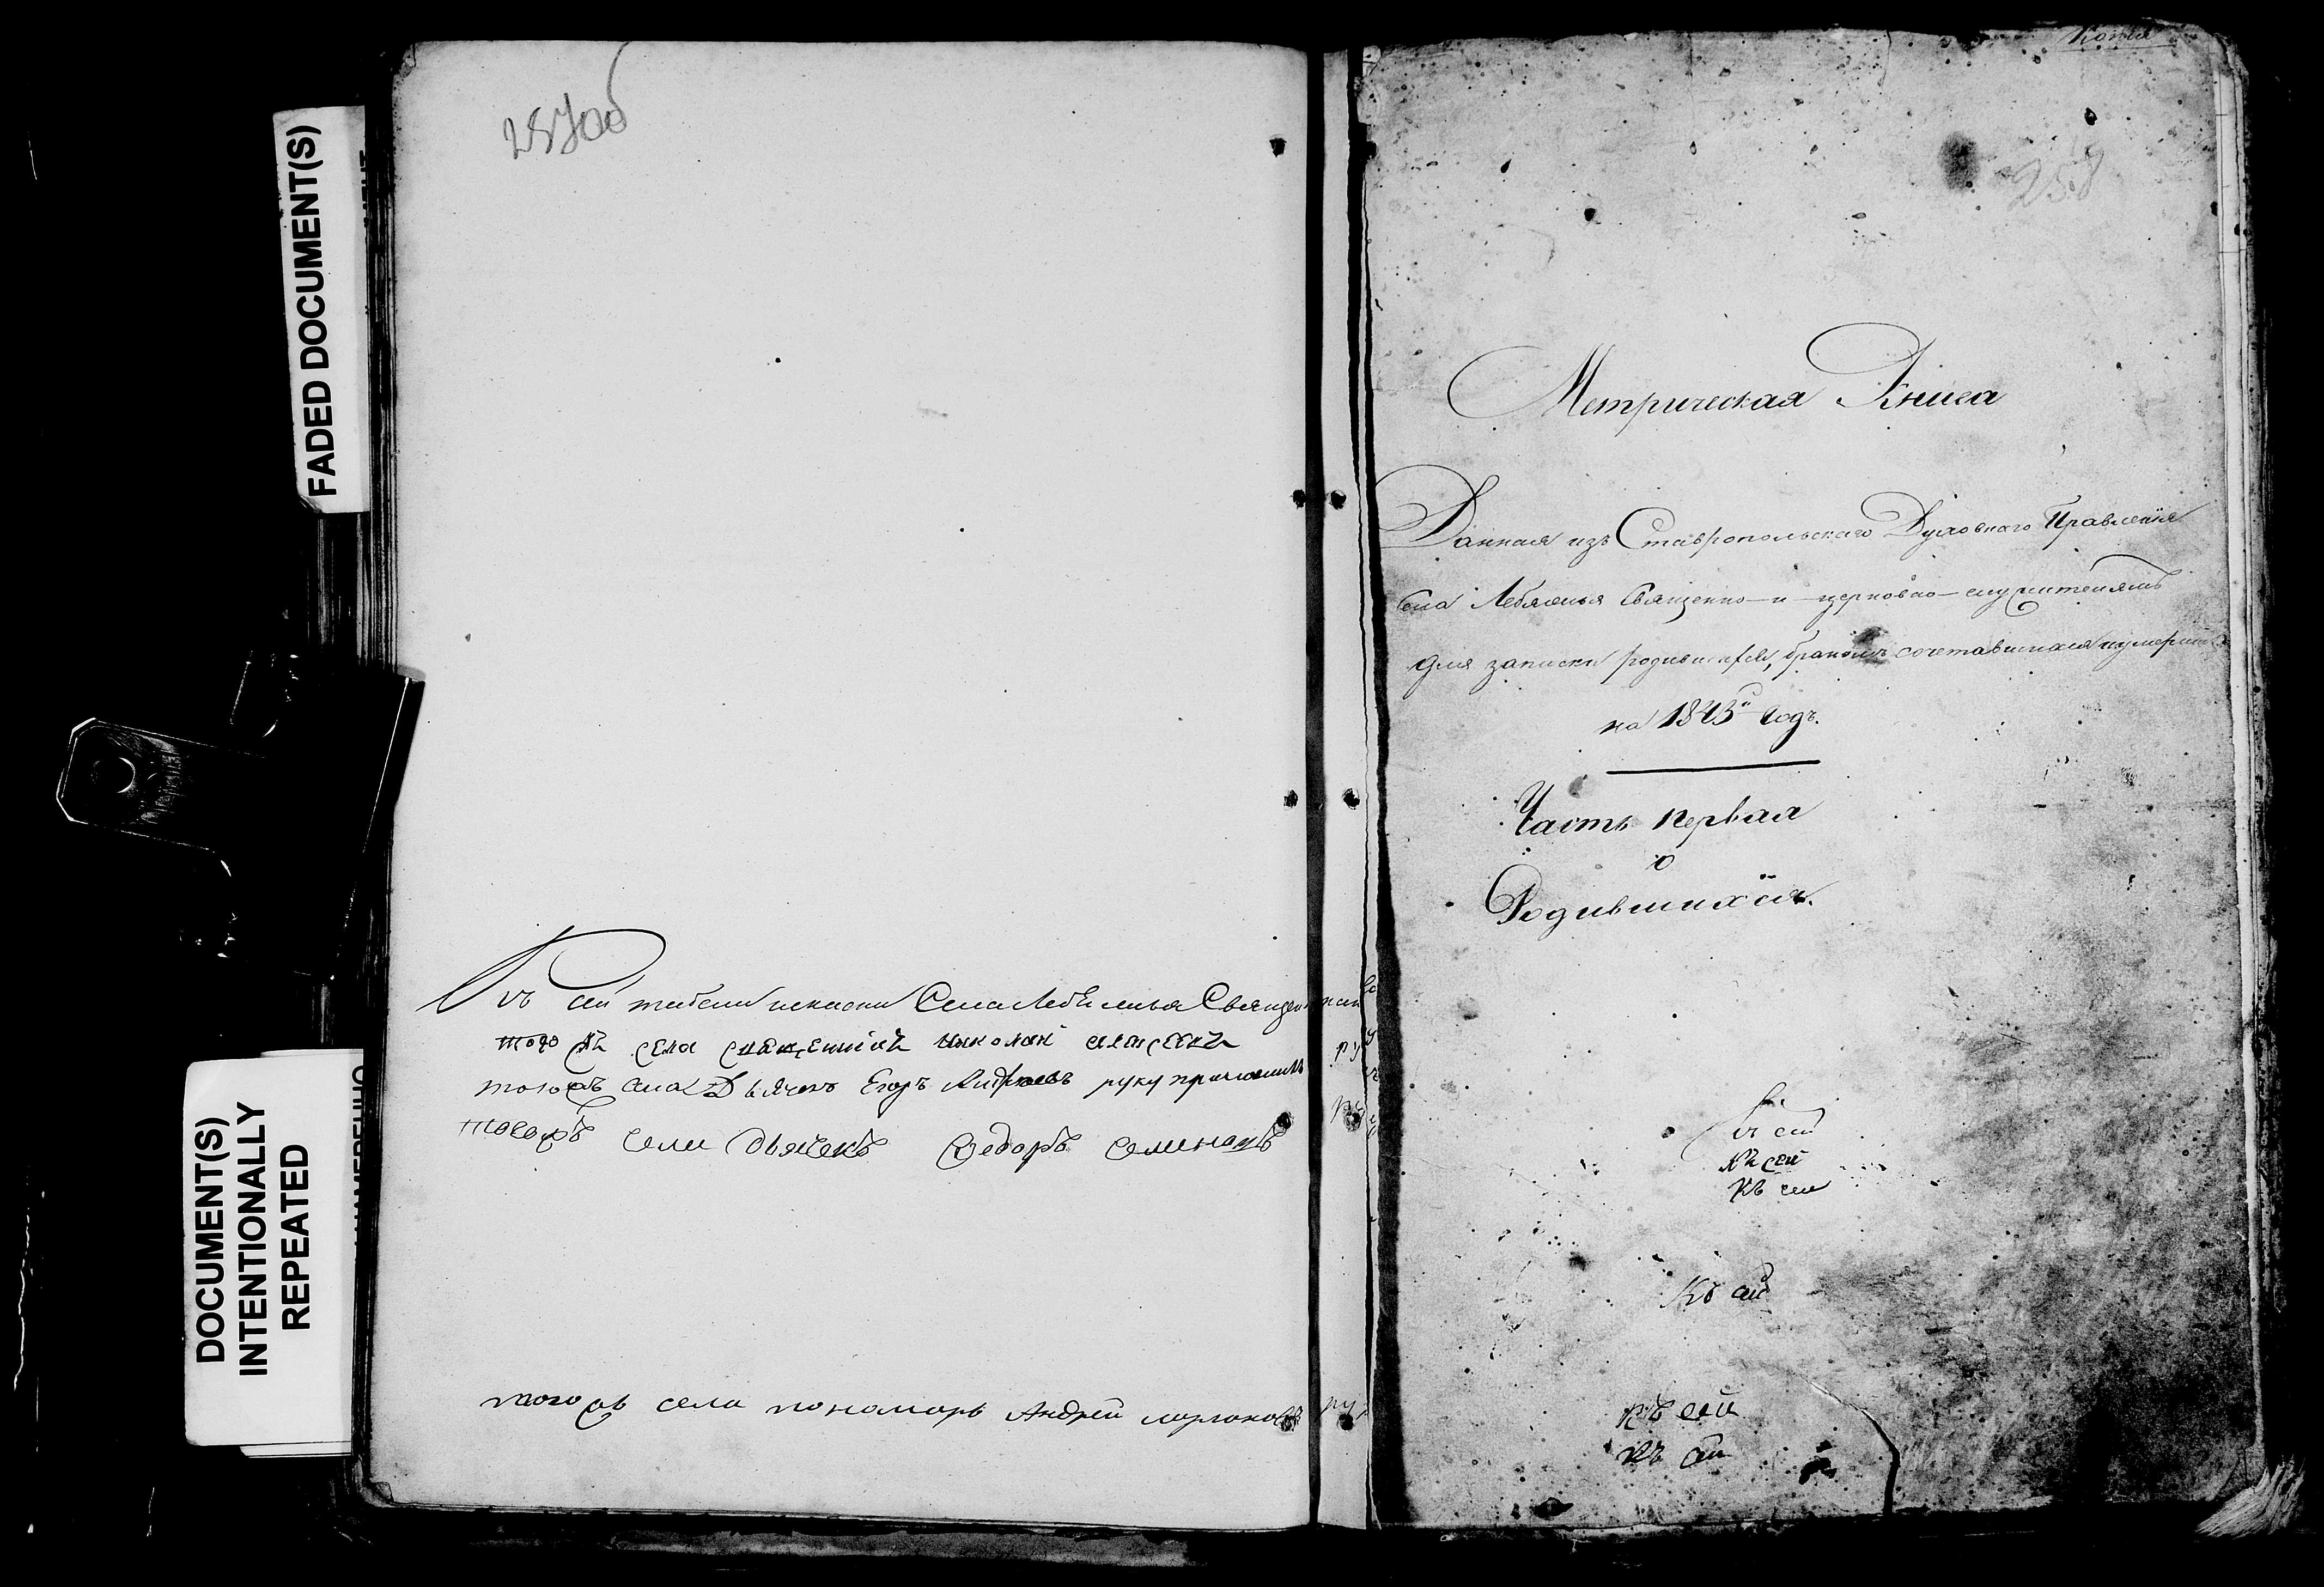 FADED DOCUMENT(S)
DOCUMENT(S)
INTENTIONALLY
REPEATED
257об
Къ сей Села Лебяжья Священник
того же села священникъ Николай Алексеевъ
того же села Дьячекъ Егоръ Андреевъ руку приложилъ
того же села дьячекъ Федоръ Семеновъ
того же села пономарь Андрей
Копия
258
Метрическая Книга
Данная изъ Ставропольскаго Духовнаго Правленія
Села Лебяжья Священно-и-церковно-служителямъ
для записки родившихся, бракомъ сочетавшихся и умерших
на 1843й Годъ.
Часть первая
о
Родившихся.
Къ сей
Къ сей
Къ сей
Къ сей
Къ сей
Къ сей